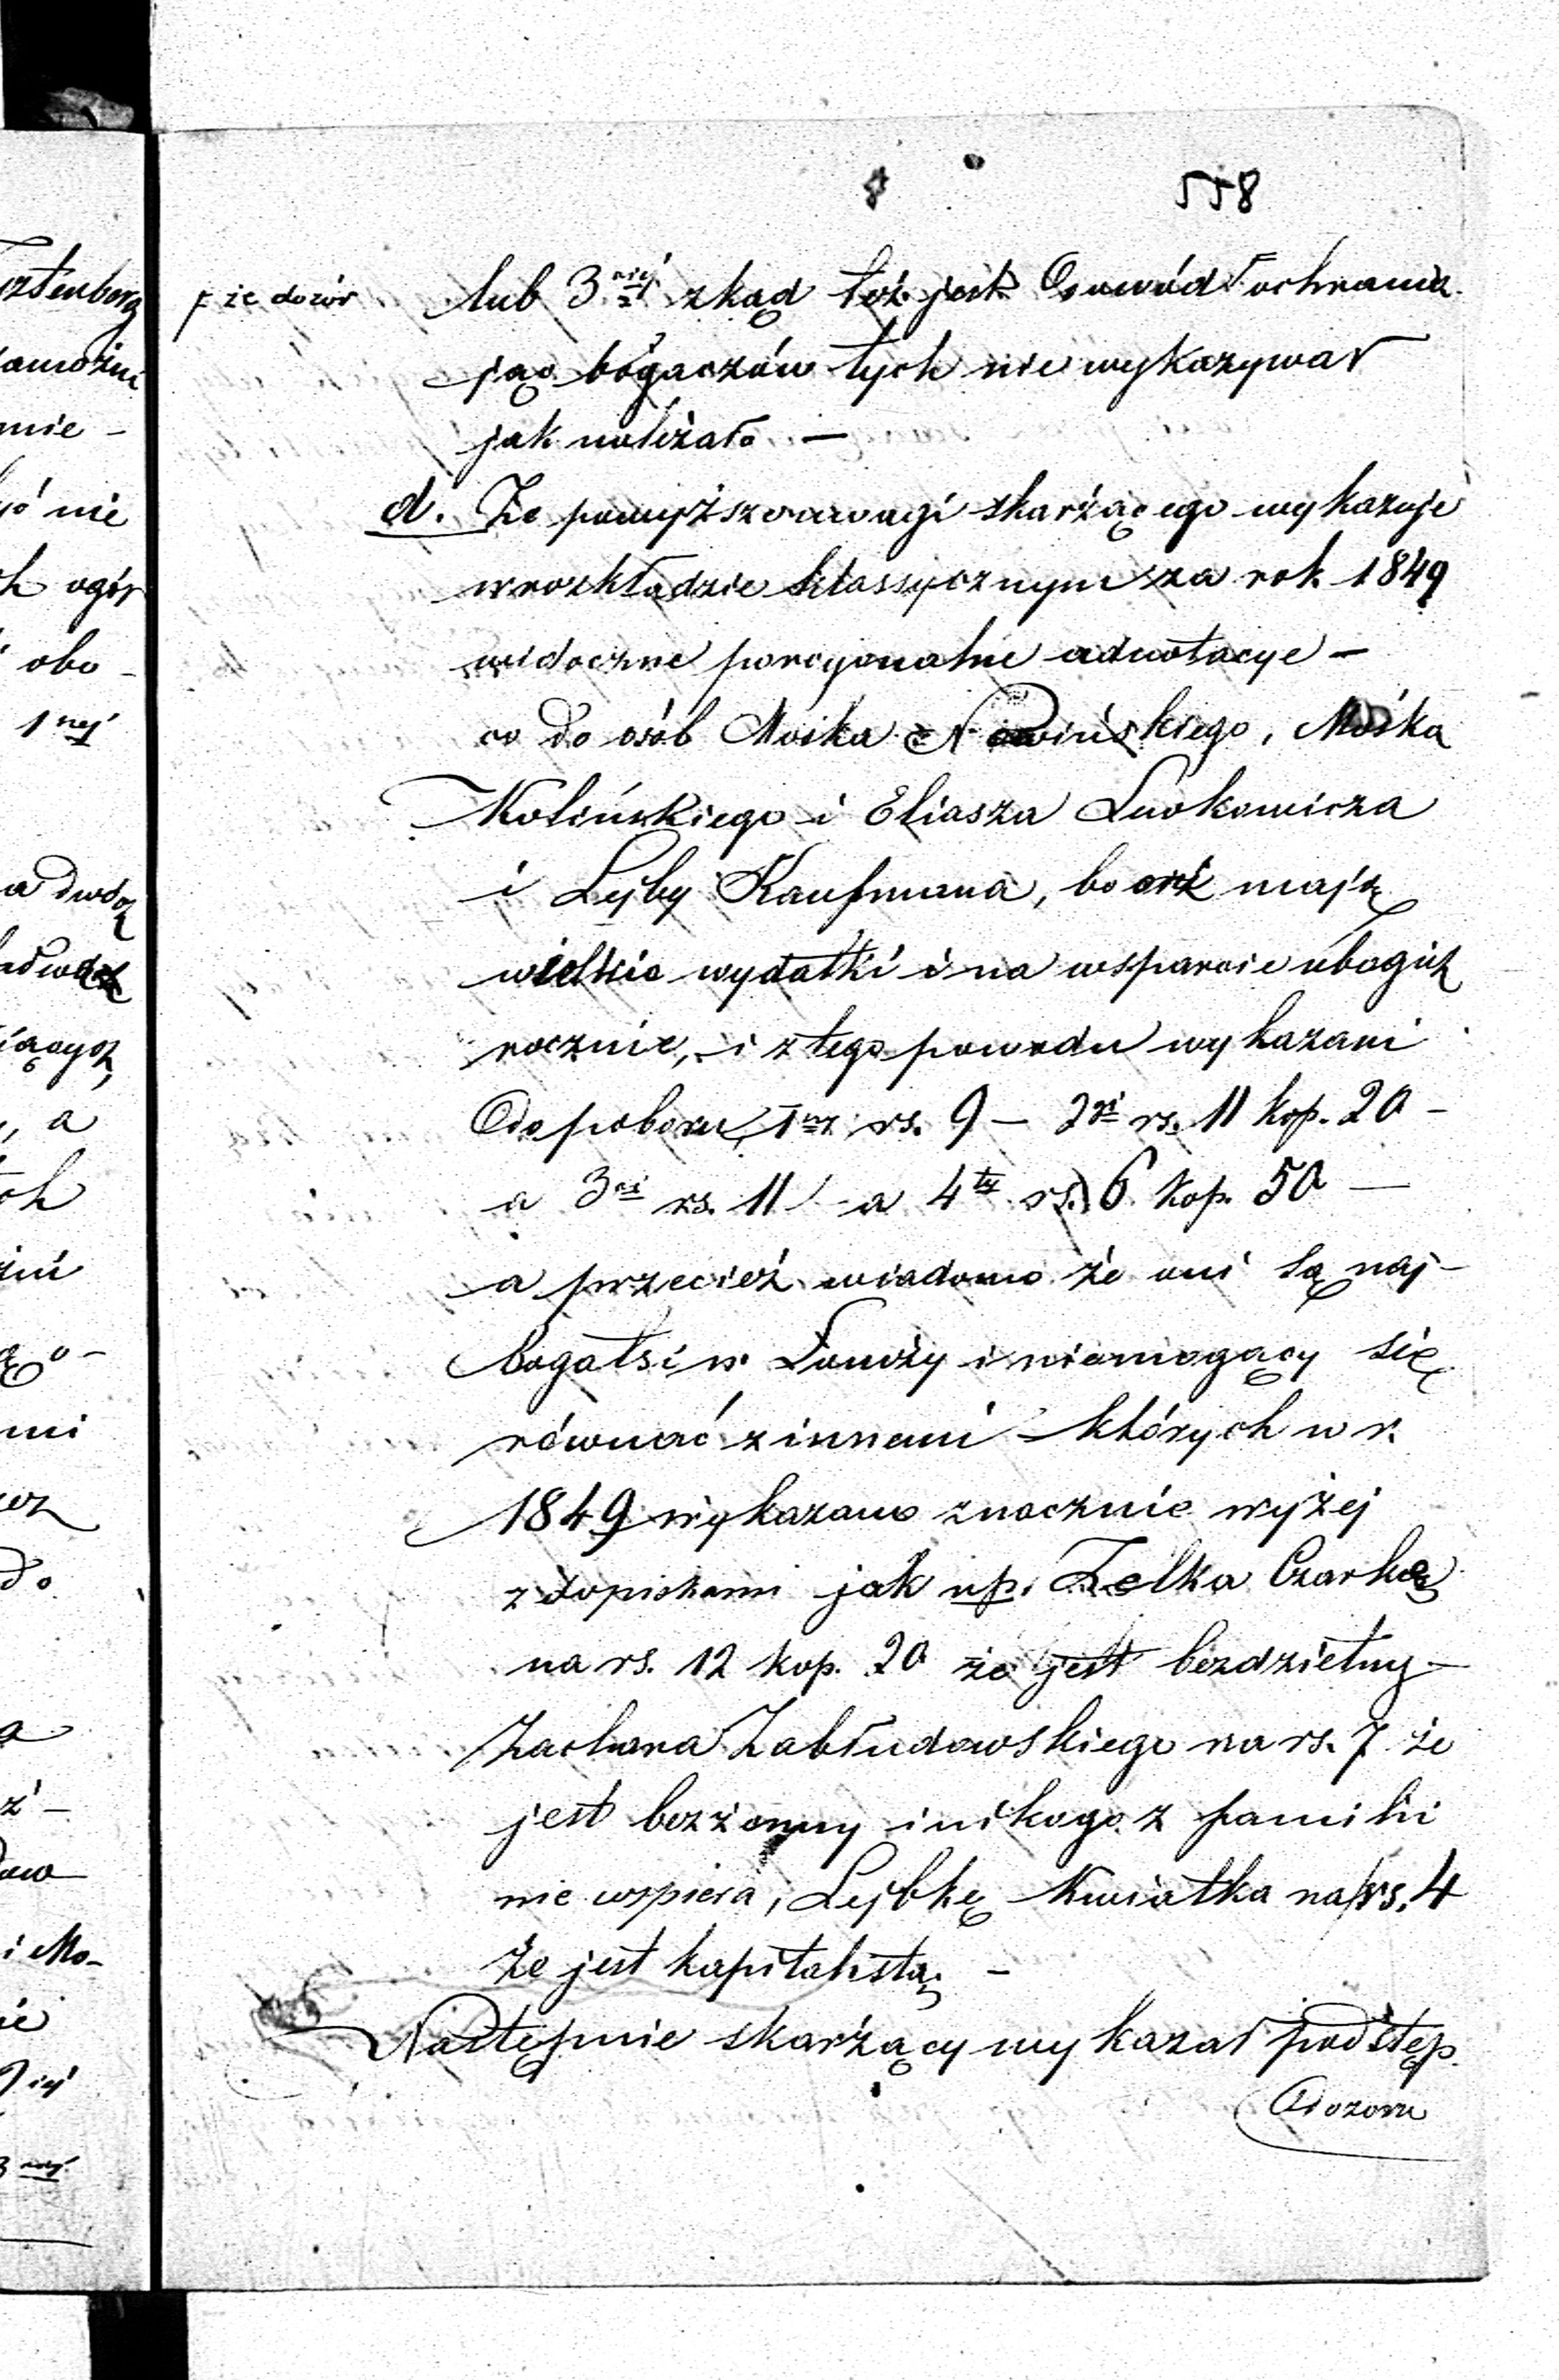 558
ƒ że dozór
lub 3ciej zkąd też jest dowód ƒ ochrania
jąc bogaczów tych nie wykazywał
jak należało —
d. Że powyższe uwagi skarżącego wykazuje
w rozkładzie klassycznym za rok 1849
widoczne porcyonalne adnotacye —
co do osób Mośka Nowińskiego, Mośka
Kolińskiego i Eliasza Luokowicza
i Lejby Kaufmana, bo oni mają
wielkie wydatki i na wsparcie ubogich
rocznie, i z tego powodu wykazani
do poboru 1ny rs. 9 — 2gi rs. 11 kop. 20 —
a 3ci rs. 11 — a 4ty rs. 6 kop. 50 —
a przecież wiadomo że oni są naj-
bogatsi w Łomży i niemogący się
równać z innemi których w r.
1849 wykazano znacznie wyżej
z dopiskami jak np. Zelka Czarkę
na rs. 12 kop. 20 że jest bezdzietny —
Zachara Zabłudowskiego na rs. 7 że
jest bezżenny i nikogo z familii
nie wspiera, Lejbkę Kwiatka na rs. 4
że jest kapitalistą —
Następnie skarżący wykazał podstęp
Dozoru